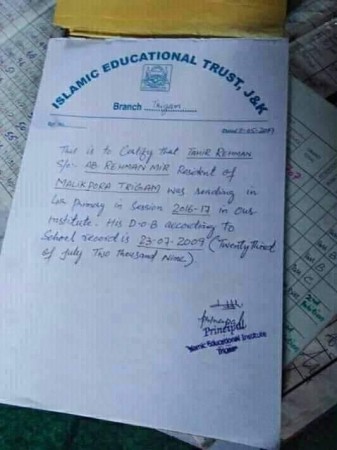 ISLAMIC EDUCATIONAL TRUST, J&K
Branch Trigam
This is to Certify that TAHIR REHMAN
S/o:- AB REHMAN MIR Resident of
MALIKPORA TRIGAM was reading in
Primary in Session 2016-17 in our
Institute. His D-o-B according to
School record is 23-07-2009 (Twenty Third
of July Two thousand Nine).
Principal
Principal
Islamic Educational Institute
Trigam